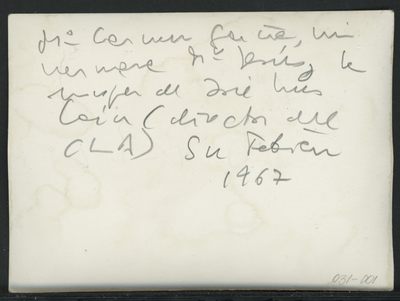 Mª Carmen García, mi
hermana Mª Jesús, y la
mujer de José Luis
(director del
CLA) Su Febrero
1967
031-001